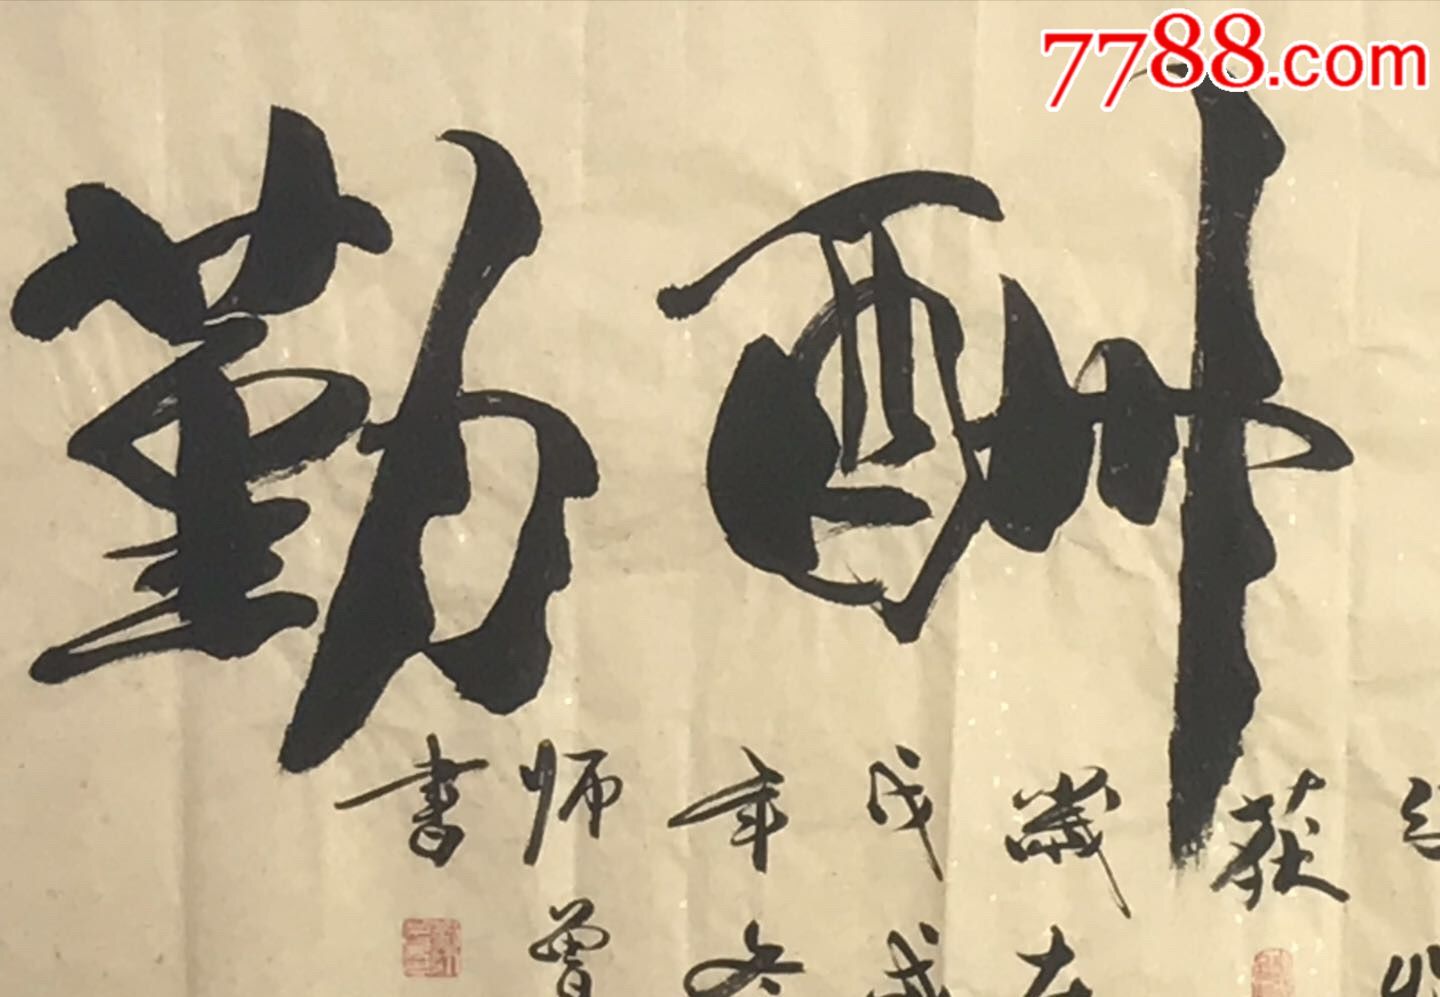 7788.com
酬勤
获
歲在
戊戌
年冬
师曾
书